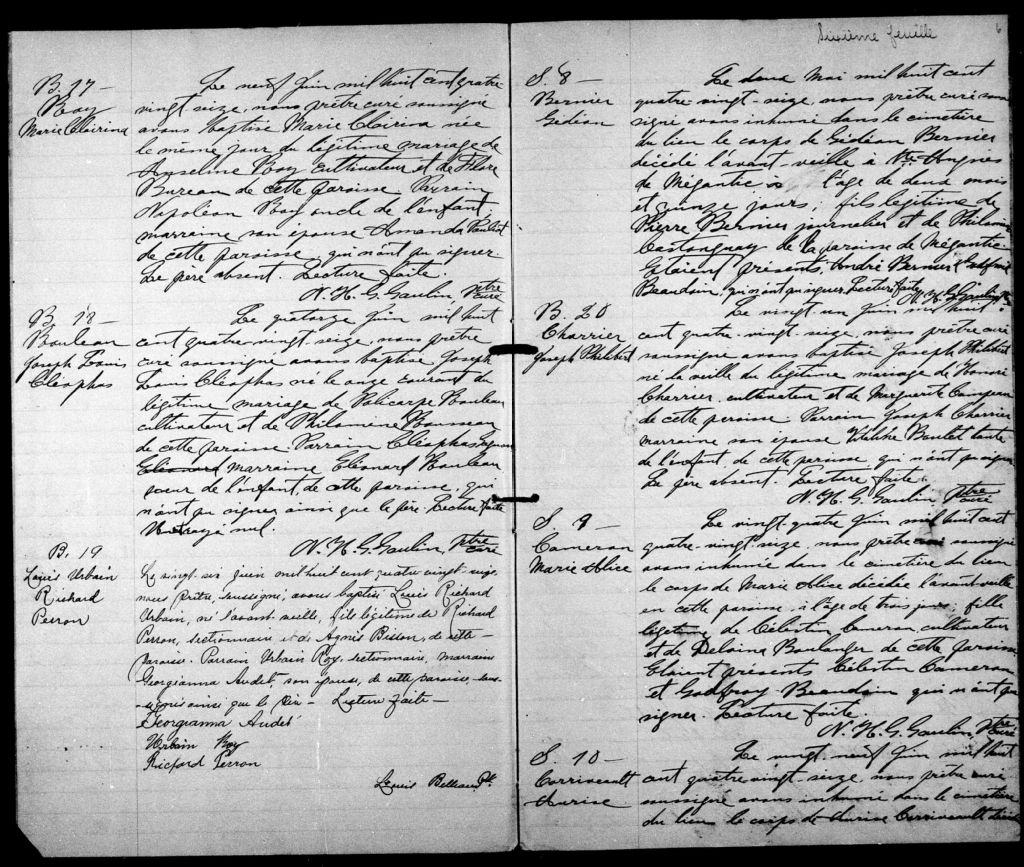 B. 17 —
Roy
Marie Clairina
Le neuf Juin mil huit cent quatre
vingt seize, nous prêtre curé soussigné
avons baptisé Marie Clairina née
le même jour du légitime mariage de
Anselme Roy cultivateur et de Flore
Bureau de cette paroisse. Parrain
Napoléon Roy oncle de l'enfant;
marraine son épouse Amanda
de cette paroisse, qui n'ont pu signer
Le père absent. Lecture faite.
N. H. G. Gaulin, Ptre curé
B. 18 —
Rouleau
Joseph Louis
Cléophas
Le quatorze Juin mil huit
cent quatre-vingt-seize, nous prêtre
curé soussigné avons baptisé Joseph
Louis Cléophas né le onze courant du
légitime mariage de Policarpe Rouleau
cultivateur et de Philomène
de cette paroisse. Parrain Cléophas
Eléonard marraine Eléonard Rouleau
sœur de l'enfant, de cette paroisse, qui
n'ont pu signer ainsi que le père. Lecture faite
Un mot rayé nul.
N. H. G. Gaulin, Ptre curé
B. 19
Louis Urbain
Richard
Perron
Le vingt six juin mil huit cent quatre vingt-seize
nous Prêtre, soussigné, avons baptisé Louis Richard
Urbain, né l'avant veille, fils légitime de Richard
Perron, sectionnaire et de Agnès Bisson, de cette
paroisse. Parrain Urbain Roy, sectionnaire, marraine
Georgianna Audet, son épouse, de cette paroisse, sous-
signés ainsi que le Père — Lecture faite —
Georgianna Audet
Urbain Roy
Richard Perron
Louis Ptre
Sixième feuille
6
S. 8 —
Bernier
Gédéon
Le deux Mai mil huit cent
quatre-vingt-seize, nous prêtre curé sous
signé avons inhumé dans le cimetière
du lieu le corps de Gédéon Bernier
décédé l'avant-veille à Ste-Agnès
de Mégantic à l'âge de deux mois
et quinze jours; fils légitime de
Pierre Bernier journalier et de Philomène
Castonguay de la paroisse de Mégantic
Etaient présents André Bernier
Beaudoin, qui n'ont pu signer. Lecture faite
N. H. G. Gaulin
B. 20
Charrier
Joseph Philibert
Le vingt un Juin mil huit
cent quatre-vingt-seize, nous prêtre curé
soussigné avons baptisé Joseph Philibert
né la veille du légitime mariage de Honoré
Charrier, cultivateur et de Marguerite
de cette paroisse. Parrain Joseph Charrier
marraine son épouse Boulet tante
de l'enfant, de cette paroisse qui n'ont pu signer
Le père absent. Lecture faite.
N. H. G. Gaulin, Ptre curé
S. 9
Cameron
Marie Alice
Le vingt-quatre Juin mil huit cent
quatre-vingt-seize, nous prêtre curé soussigné
avons inhumé dans le cimetière du lieu
le corps de Marie Alice décédée l'avant-veille
en cette paroisse à l'âge de trois jours; fille
légitime de Célestin Cameron, cultivateur
et de Boulanger de cette paroisse
Etaient présents Célestin Cameron
et Godfroy Beaudoin qui n'ont pu
signer. Lecture faite.
N. H. G. Gaulin, Ptre Curé
S. 10 —
Corriveault
Aurise
Le vingt-neuf Juin mil huit
cent quatre-vingt-seize nous prêtre curé
soussigné avons inhumé dans le cimetière
du lieu le corps de Aurise Corriveault